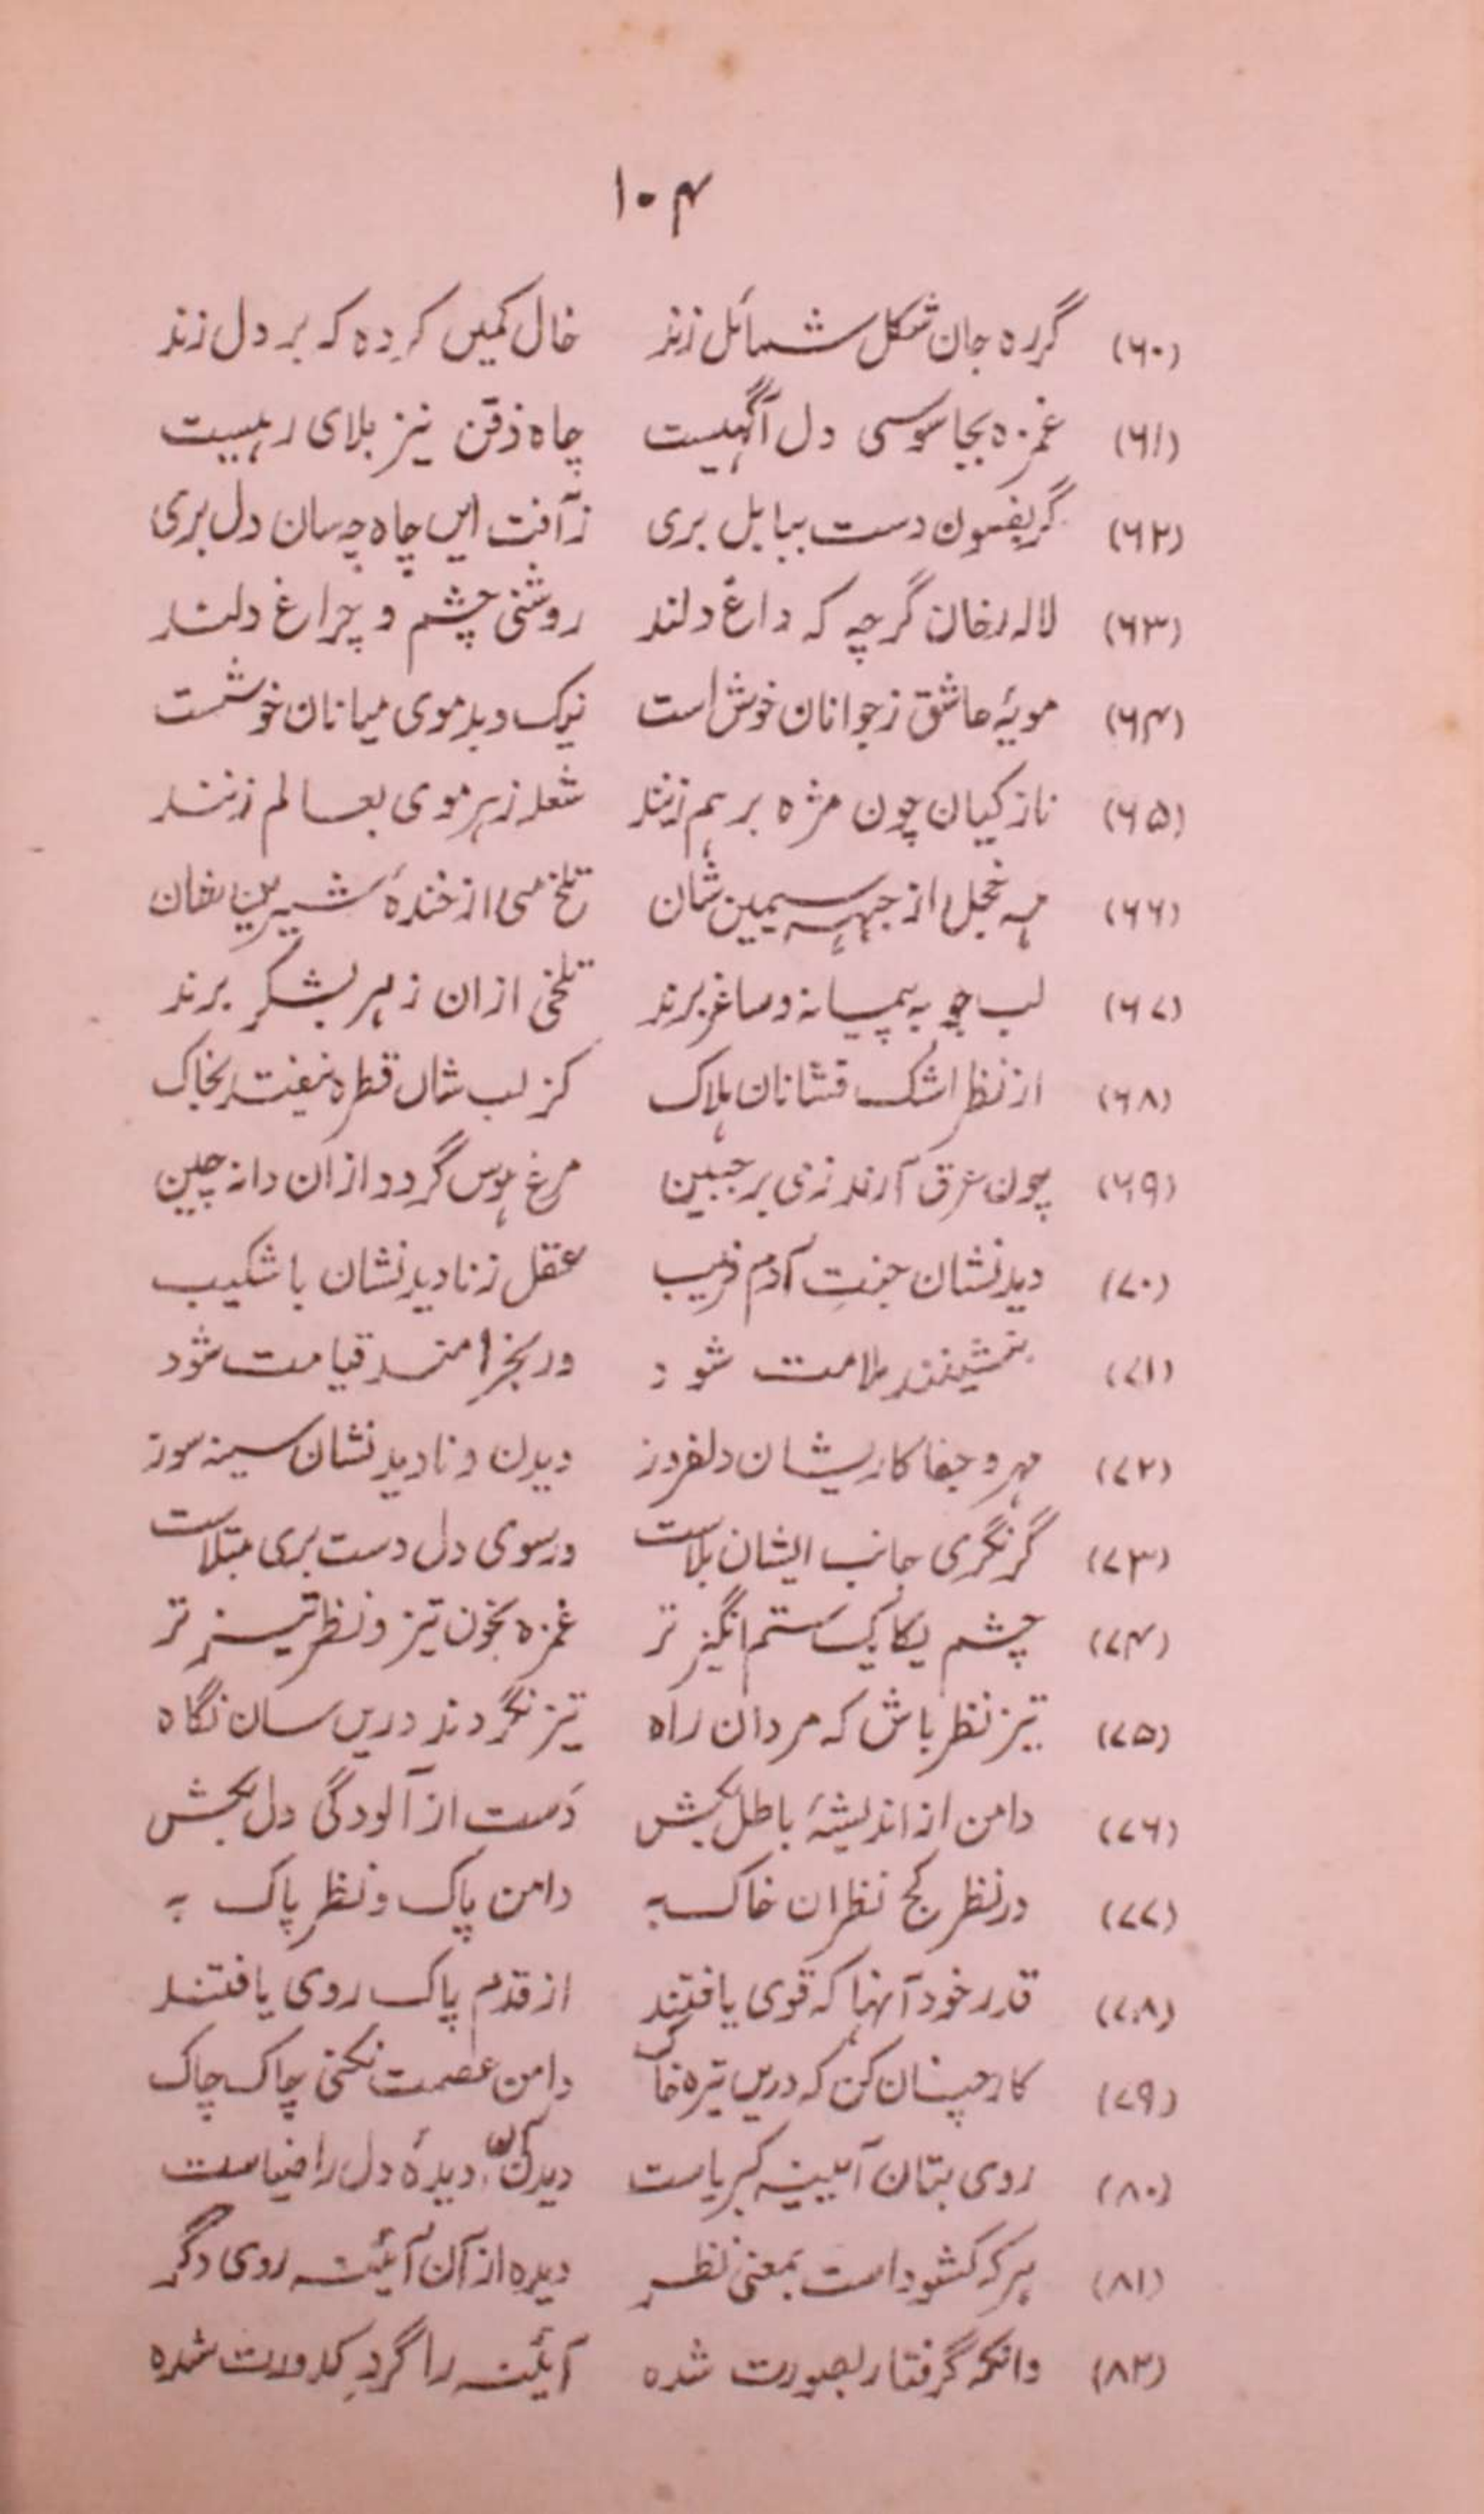 ۱۰۴
(۶۰) گر ره جان شکل شمائل زند خال کمیں کرده که بر دل زند
(۶۱) غمزه بجاسوسی دل آگہیست چاه ذقن نیز بلای رہیست
(۶۲) گر بفسون دست ببابل بری زآفت ایں چاه چه سان دل بری
(۶۳) لاله رخان گرچه که داغ دلند روشنی چشم و چراغ دلند
(۶۴) مویهٔ عاشق ز جوانان خوش است نیک و بد موی میانان خوشست
(۶۵) نازکیان چون مژه برہم زنند شعله زہر موی بعالم زنند
(۶۶) مہ خجل از جبہه سیمین شان تلخ می از خندهٔ شیرین شان
(۶۷) لب چو به پیمانه و ساغر برند تلخی ازان زہر بشکر برند
(۶۸) از نظر اشک فشانان ہلاک کز لب شاں قطره نیفتد بخاک
(۶۹) چون عرق آرند زنی بر جبین مرغ ہوس گردد ازان دانه چین
(۷۰) دیدنشان جنتِ آدم فریب عقل ز نادیدنشان با شکیب
(۷۱) بنشینند ملامت شود ور بخرامند قیامت شود
(۷۲) مہر و جفا کار یشان دلفروز دیدن و نادیدنشان سینه سوز
(۷۳) گر نگری جانب ایشان بلاست ور سوی دل دست بری مبتلاست
(۷۴) چشم یکایک ستم انگیز تر غمزه بخون تیز و نظر تیز تر
(۷۵) تیز نظر باش که مردان راه تیز نگردند دریں سان نگاه
(۷۶) دامن از اندیشهٔ باطل بکش دست از آلودگی دل بکش
(۷۷) در نظر کج نظران خاک به دامن پاک و نظر پاک به
(۷۸) قدر خود آنہا که قوی یافتند از قدم پاک روی یافتند
(۷۹) کار چنان کن که دریں تیره خاک دامن عصمت نکنی چاک چاک
(۸۰) روی بتان آیینه کبریاست دیدن آں دیدهٔ دل را ضیاست
(۸۱) ہر که کشوداست بمعنی نظر دیده از آن آئینه روی دگر
(۸۲) وانکه گرفتار بصورت شده آئینه را گردِ کدورت شده